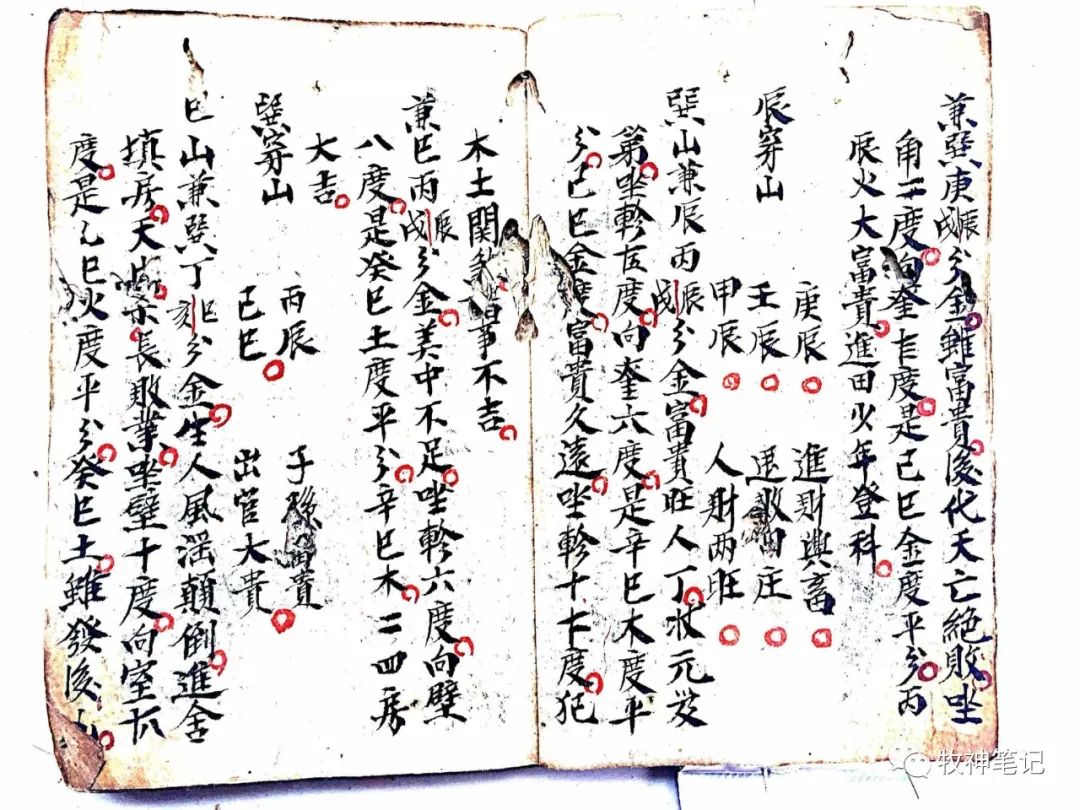 兼巽庚辰戌分金雖富貴後代夭亡絕敗坐
角二度向奎七度是己巳金度平分丙
辰火大富貴進田少年登科
庚辰 進財興畜
辰穿山 壬辰 退敗田庄
甲辰 人財两旺
巽山兼辰丙辰戌分金富貴旺人丁壮元及
第坐軫五度向奎六度是辛巳木度平
分己巳金度富貴久遠坐軫十七度犯
木土関煞諸事不吉
兼巳丙辰戌分金美中不足坐軫六度向壁
八度是癸巳土度平分辛巳木二四房
大吉
丙辰 子孫富貴
巽穿山 己巳 出官大貴
巳山兼巽丁巳亥分金生人風滛顛倒進舍
填房夭 長敗業坐壁十度向室
度是乙巳火度平分癸巳土雖發後
牧神笔记